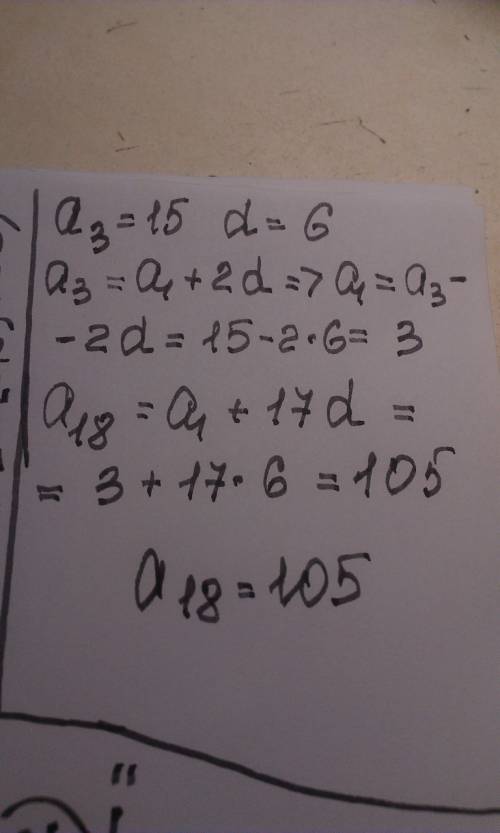 a₃ = 15 d = 6
a₃ = a₁ + 2d => a₁ = a₃ -
- 2d = 15 - 2·6 = 3
a₁₈ = a₁ + 17d =
= 3 + 17·6 = 105
a₁₈ = 105